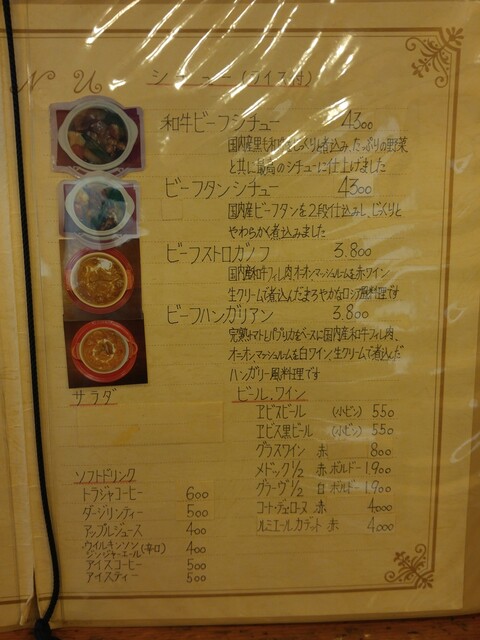 NU
シチュー(ライス付)
和牛ビーフシチュー 4300
国内産黒毛和牛をじっくり煮込み、たっぷりの野菜
と共に最高のシチューに仕上げました
ビーフタンシチュー 4300
国内産ビーフタンを2段仕込みし、じっくりと
やわらかく煮込みました
ビーフストロガノフ 3.800
国内産和牛フィレ肉、オニオン、マッシュルームを赤ワイン、
生クリームで煮込んだまろやかなロシア風料理です
ビーフハンガリアン 3.800
完熟トマト、パプリカをベースに国内産和牛フィレ肉、
オニオン、マッシュルームを白ワイン、生クリームで煮込んだ
ハンガリー風料理です
サラダ
ビール、ワイン
ヱビスビール (小ビン) 550
ヱビス黒ビール (小ビン) 550
グラスワイン 赤 800
メドック1/2 赤 ボルドー 1.900
グラーヴ1/2 白 ボルドー 1.900
コート・デュ・ローヌ 赤 4.000
ルミエールカデット 赤 4.000
ソフトドリンク
トラジャコーヒー 600
ダージリンティー 500
アップルジュース 400
ウイルキンソン
ジンジャーエール(辛口) 400
アイスコーヒー 500
アイスティー 500